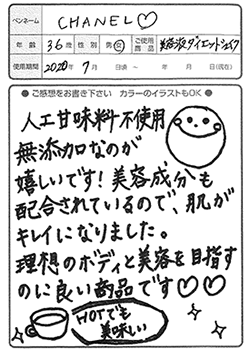 ペンネーム CHANEL♡
年齢 36歳 性別 男・女 ご使用商品 美容液ダイエットシェイク
使用期間 2020年 7月 日頃 ~ 年 月 日(現在)
● ご感想をお書き下さい カラーのイラストもOK ●
人工甘味料不使用
無添加なのが
嬉しいです!美容成分も
配合されているので、肌が
キレイになりました。
理想のボディと美容を目指す
のに良い商品です♡♡
HOTでも
美味しい